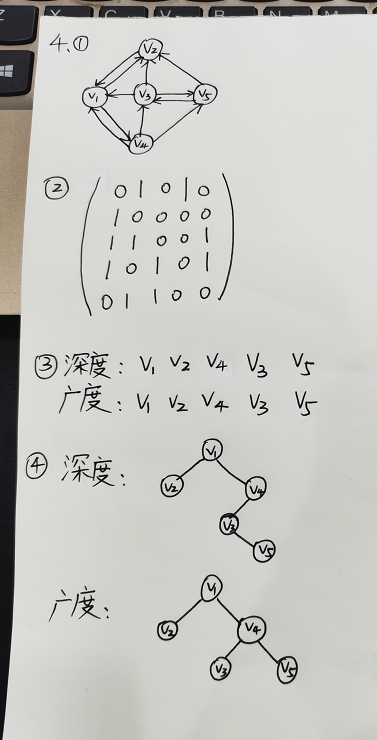 4.①
V2
V1 V3 V5
V4
② 0 1 0 1 0
1 0 0 0 0
1 1 0 0 1
1 0 1 0 1
0 1 1 0 0
③ 深度: V1 V2 V4 V3 V5
广度: V1 V2 V4 V3 V5
④ 深度:
V1
V2 V4
V3
V5
广度:
V1
V2 V4
V3 V5